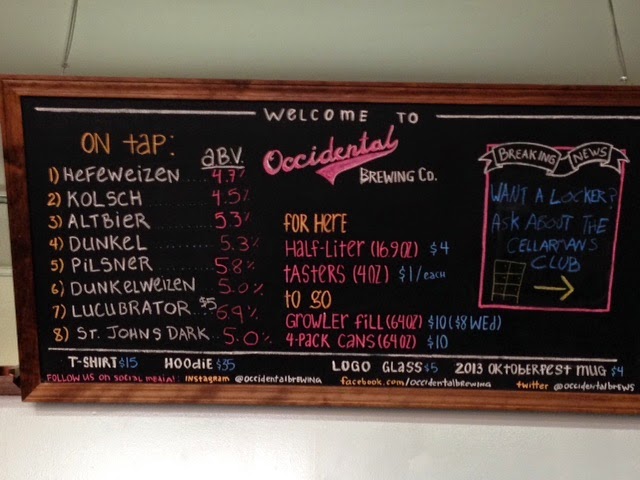 WELCOME TO
Occidental
BREWING Co.
ON TAP:
A.B.V.
1) HEFEWEIZEN 4.7%
2) KOLSCH 4.5%
3) ALTBIER 5.3%
4) DUNKEL 5.3%
5) PILSNER 5.8%
6) DUNKELWEIZEN 5.0%
7) LUCUBRATOR $5 6.9%
8) ST. JOHNS DARK 5.0%
FOR HERE
HALF-LITER (16.9OZ) $4
TASTERS (4OZ) $1/EACH
TO GO
GROWLER FILL (64OZ) $10 ($8 WED)
4-PACK CANS (64OZ) $10
BREAKING NEWS
WANT A LOCKER?
ASK ABOUT THE
CELLARMANS
CLUB
T-SHIRT $15 HOODIE $35 LOGO GLASS $5 2013 OKTOBERFEST MUG $4
FOLLOW US ON SOCIAL MEDIA! INSTAGRAM @OCCIDENTALBREWING facebook.com/occidentalbrewing twitter @OCCIDENTALBREWS